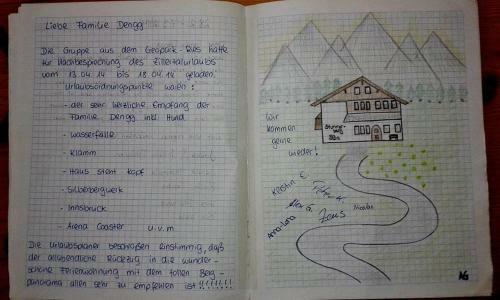 Liebe Familie Dengg
Die Gruppe aus dem Geopark-Ries hatte
zur Nachbesprechung des Zillertalurlaubs
vom 13.04.14 bis 18.04.14 geladen.
Urlaubsordnungspunkte waren:
- der sehr herzliche Empfang der
Familie Dengg inkl. Hund
- Wasserfälle
- Klamm
- Haus steht Kopf
- Silberbergwerk
- Innsbruck
- Arena Coaster u.v.m
Die Urlaubsplaner beschloßen einstimmig, daß
der allabendliche Rückzug in die wunder-
schöne Ferienwohnung mit dem tollen Berg-
panorama allen sehr zu empfehlen ist!!!!!!!
Wir
kommen
gerne
wieder!
Kerstin E.
Alex G.
Zeus
Nicolas
Anna-Lena